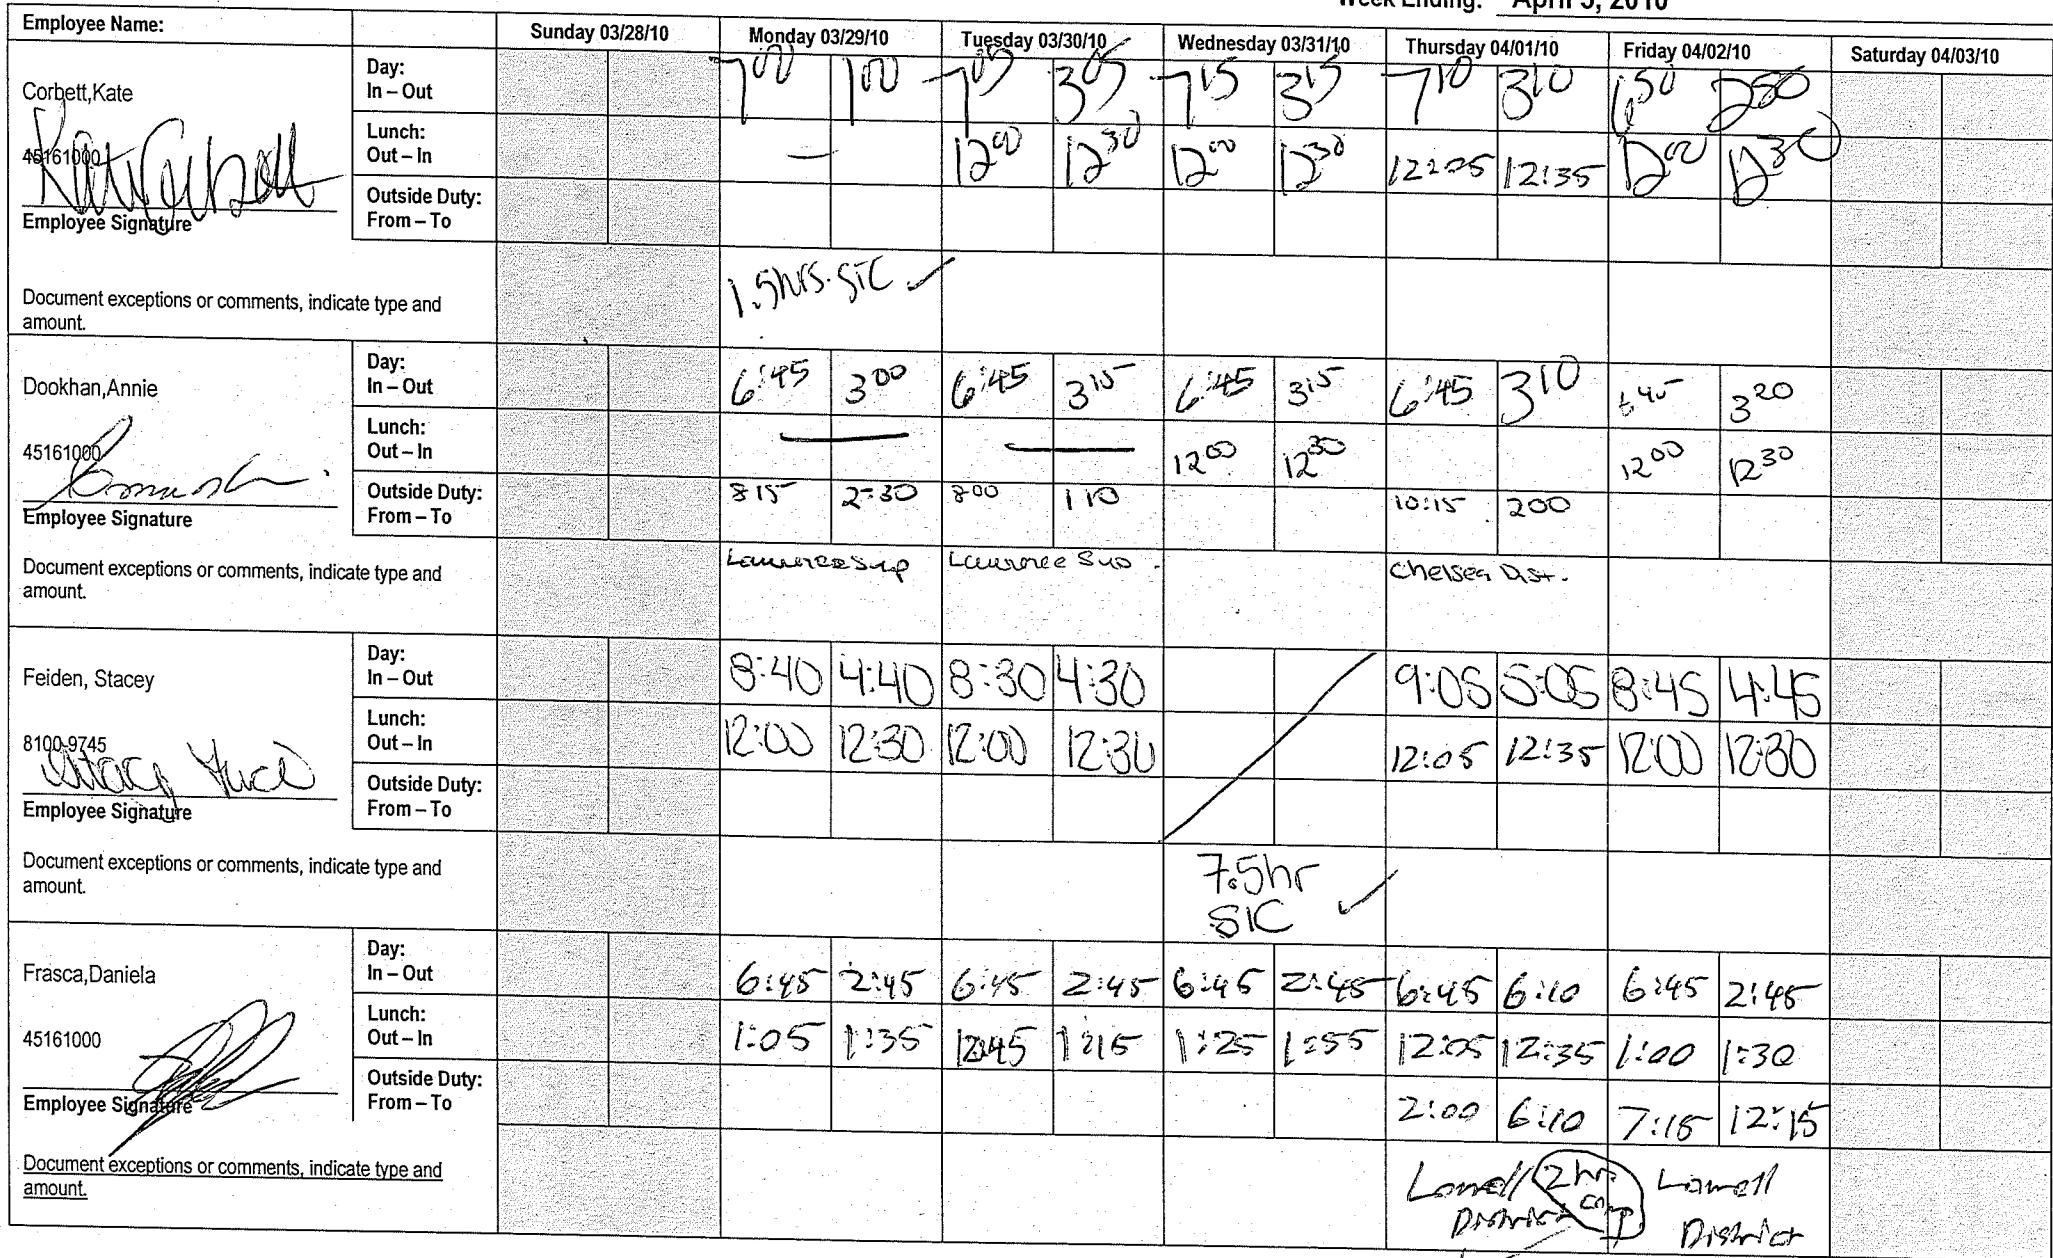 Week Ending: April 3, 2010
Employee Name: Sunday 03/28/10 Monday 03/29/10 Tuesday 03/30/10 Wednesday 03/31/10 Thursday 04/01/10 Friday 04/02/10 Saturday 04/03/10
Corbett,Kate
45161000
Employee Signature
Day:
In – Out 7 00 1 00 7 05 3 05 7 15 3 15 7 10 3 10 6 50 2 50
Lunch:
Out – In — 12 00 12 30 12 00 12 30 12:05 12:35 12 00 12 30
Outside Duty:
From – To
Document exceptions or comments, indicate type and
amount.
1.5hrs. SIC ✓
Dookhan,Annie
45161000
Employee Signature
Day:
In – Out 6:45 3 00 6:45 3 15 6:45 3 15 6:45 3 10 6 45 3 20
Lunch:
Out – In — — 12 00 12 30 12 00 12 30
Outside Duty:
From – To 8 15 2:30 8 00 1 10 10:15 2 00
Document exceptions or comments, indicate type and
amount.
Lawrence Sup Lawrence Sup. Chelsea Dist.
Feiden, Stacey
8100-9745
Employee Signature
Day:
In – Out 8:40 4:40 8:30 4:30 9:05 5:05 8:45 4:45
Lunch:
Out – In 12:00 12:30 12:00 12:30 12:05 12:35 12:00 12:30
Outside Duty:
From – To
Document exceptions or comments, indicate type and
amount.
7.5hr
SIC ✓
Frasca,Daniela
45161000
Employee Signature
Day:
In – Out 6:45 2:45 6:45 2:45 6:45 2:45 6:45 6:10 6:45 2:45
Lunch:
Out – In 1:05 1:35 12:45 1:15 1:25 1:55 12:05 12:35 1:00 1:30
Outside Duty:
From – To 2:00 6:10 7:15 12:15
Document exceptions or comments, indicate type and
amount.
Lowell 2hr Lowell
District comp District